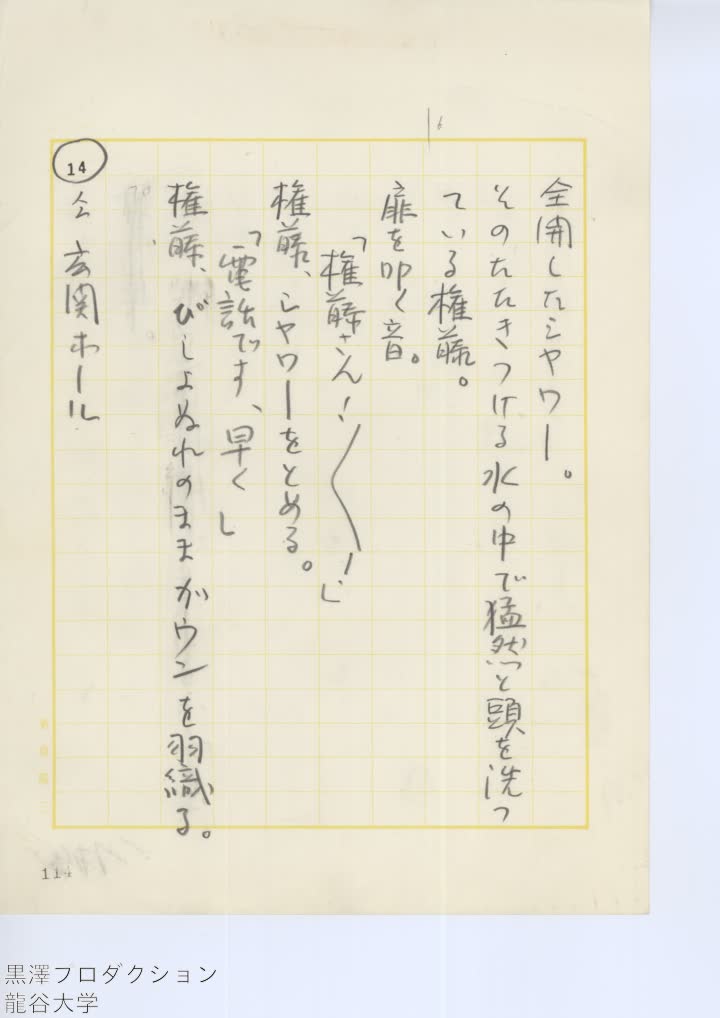 全開したシャワー。
そのたたきつける水の中で猛然と頭を洗っ
ている権藤。
扉を叩く音。
「権藤さん！〱！」
権藤、シャワーをとめる。
「電話です、早く」
権藤、びしょぬれのままガウンを羽織る。
14
仝 玄関ホール
114
黒澤プロダクション
龍谷大学